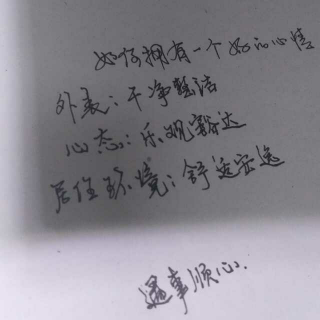 如何拥有一个好的心情
外表：干净整洁
心态：乐观豁达
居住环境：舒适安逸
遇事顺心.